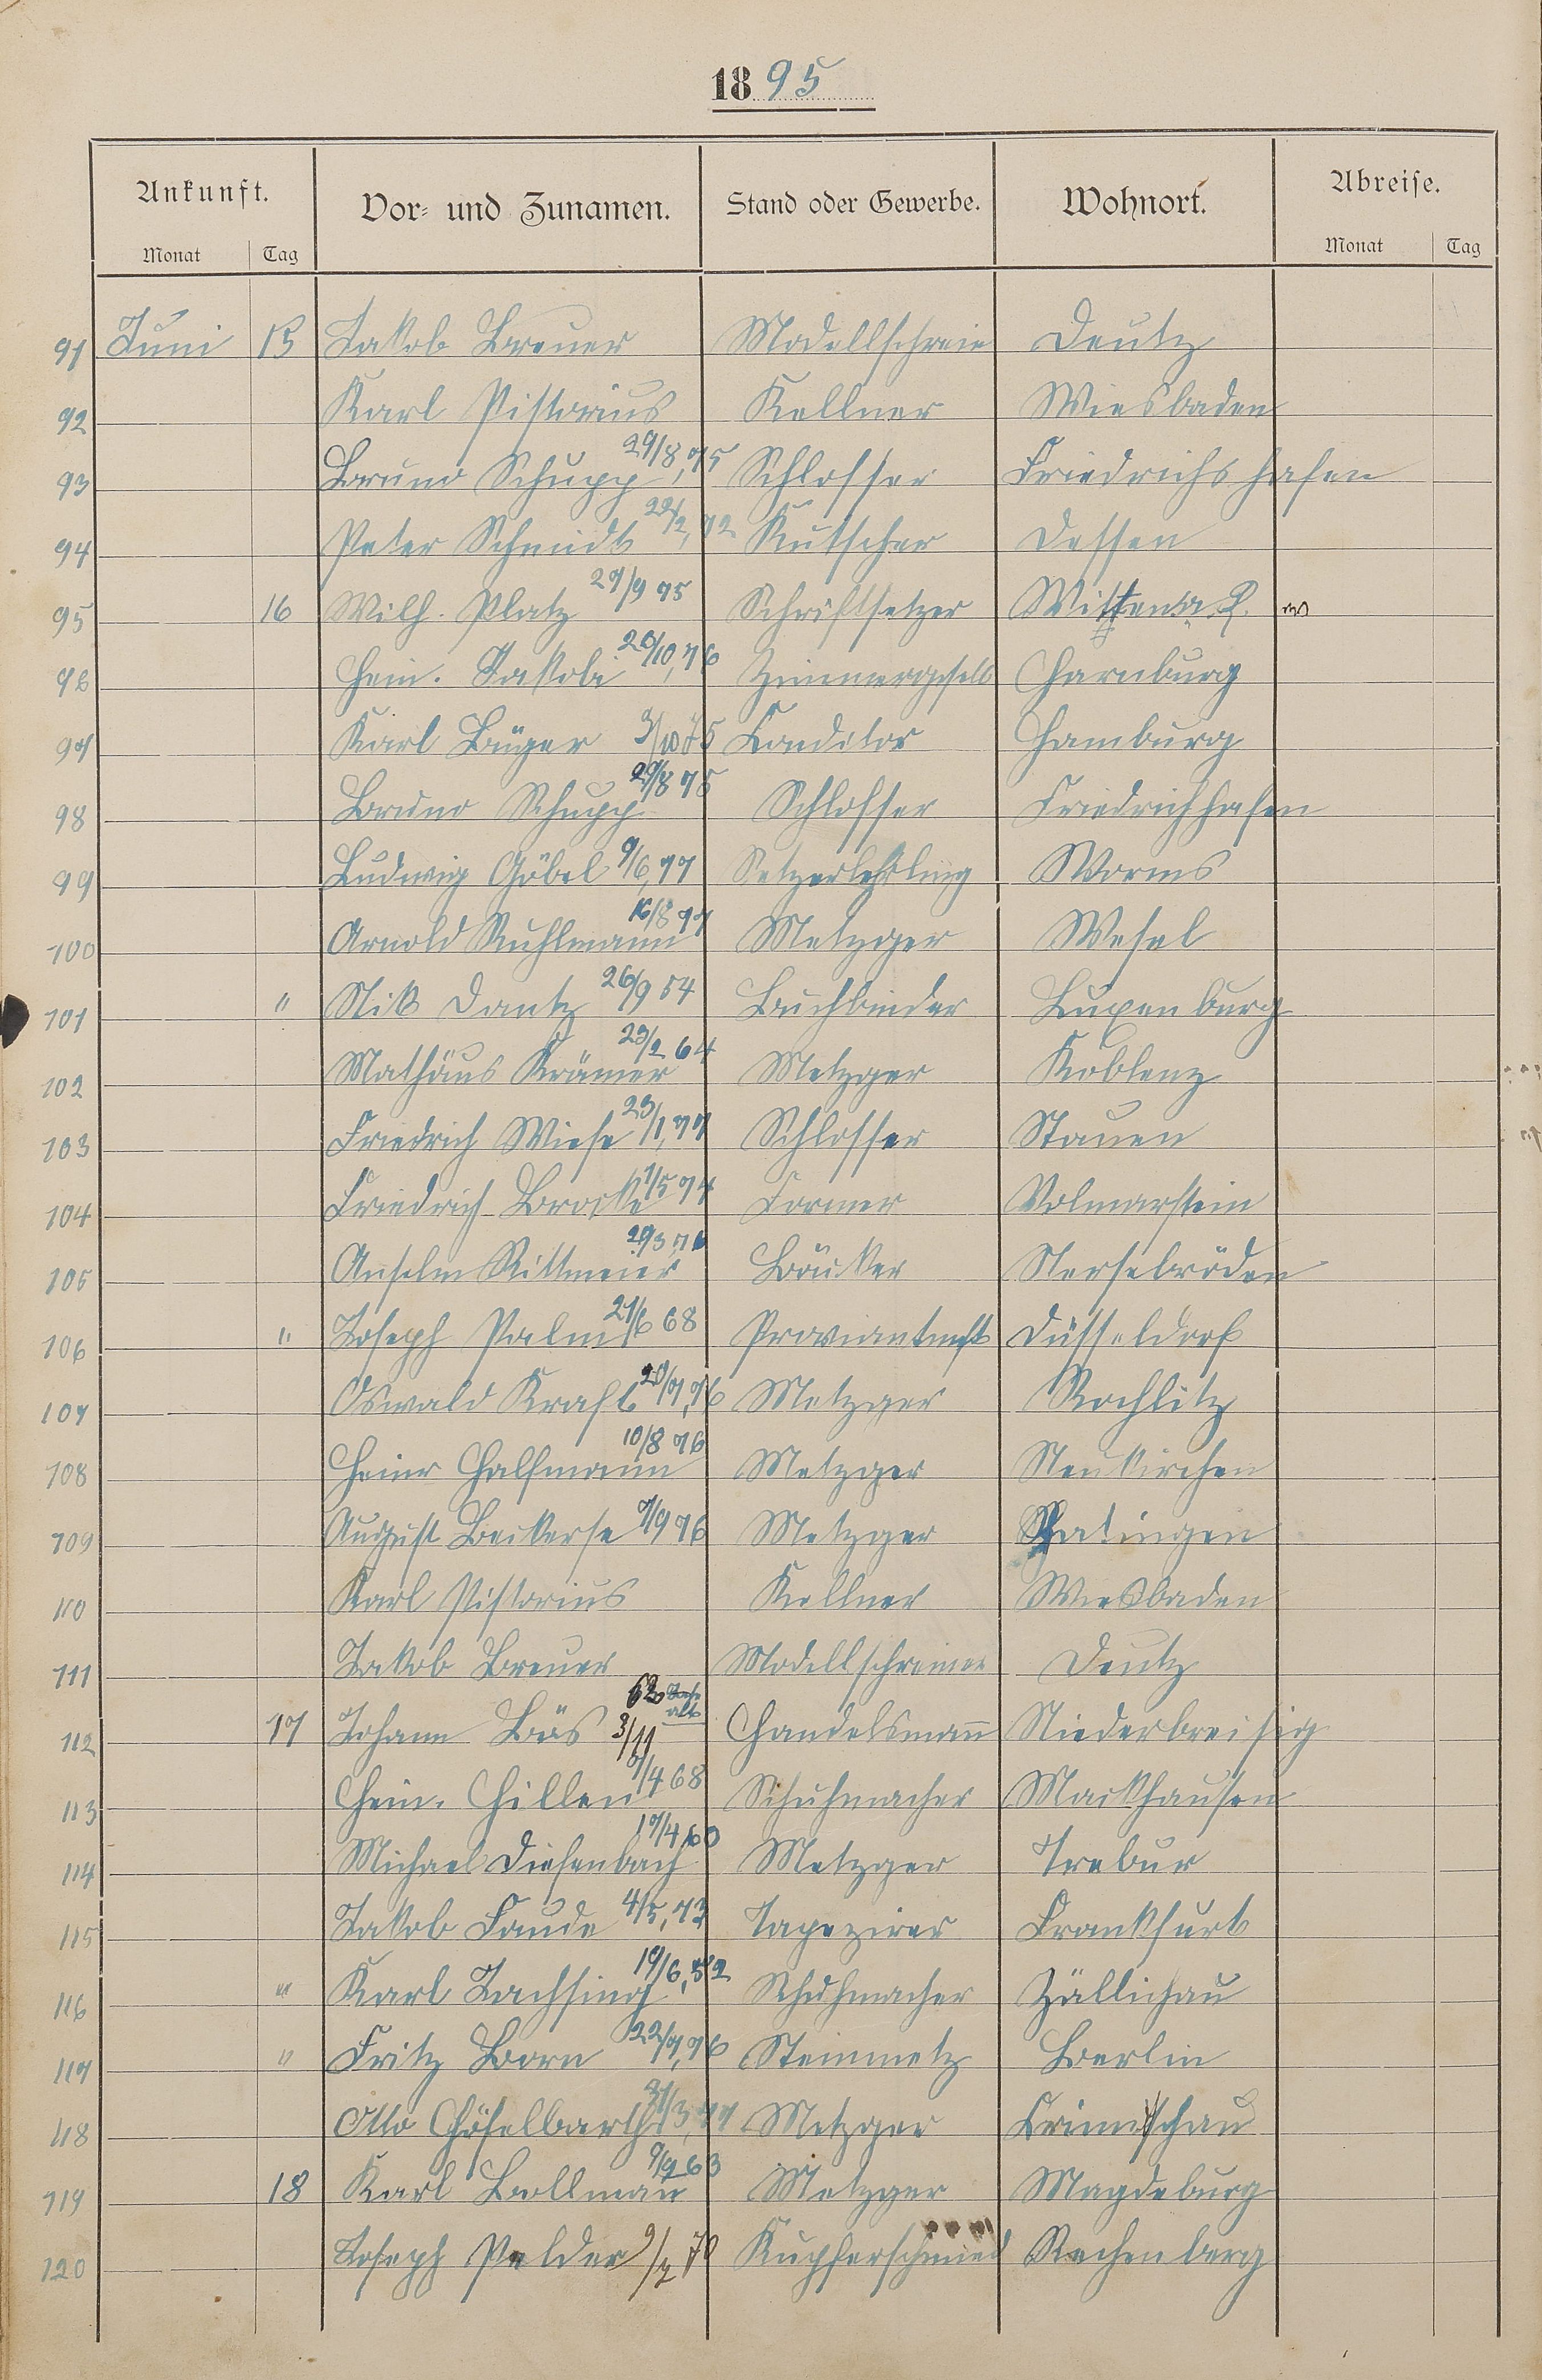 1895
Ankunft. Vor- und Zunamen. Stand oder Gewerbe. Wohnort. Abreise.
Monat Tag Monat Tag
91 Juni 15 Jakob Breuer Modellschrein Deutz
92 Karl Pistorius Kellner Wiesbaden
93 Bruno Schupp 29/8,75 Schlosser Friedrichshafen
94 Peter Schmidt 22/2,72 Kutscher Dessen
95 16 Wilh. Platz 27/9 75 Schriftsetzer Witten a. R.
96 Hein. Jakobi 26/10,76 Zimmergesell Harnburg
97 Karl Büger 3/10 75 Conditor Hamburg
98 Bruno Schupp 29/8 75 Schlosser Friedrichhafen
99 Ludwig Göbel 9/6,77 Setzerlehrling Worms
100 Arnold Ruhlmann 16/8 77 Metzger Wesel
101 " Nik Dantz 26/9 54 Buchbinder Luxenburg
102 Mathäus Krämer 23/2 64 Metzger Koblenz
103 Friedrich Wiese 23/1,77 Schlosser Stauen
104 Friedrich Brocke 1/5 74 Former Volmarstein
105 Anselm Rittmeier 29/3,76 Bäcker
106 " Joseph Palm 21/6 68 Düsseldorf
107 Oswald Kraft 20/7,76 Metzger Rochlitz
108 Heinr Halfmann 10/8 76 Metzger Neukirchen
109 August Beckerse 7/9 76 Metzger Ratingen
110 Karl Pistorius Kellner Wiesbaden
111 Jakob Breuer Modellschreiner Deutz
112 17 Johann Bös 3/11 62 alt Handelsmann Niederbreisig
113 Hein. Hillen 7/4 68 Schuhmacher Markhausen
114 Michael Diefenbach 17/4 60 Metzger Trebur
115 Jakob Faude 4/5,73 Tapezirer Frankfurt
116 " Karl Jachsing 19/6,52 Schuhmacher Zällichau
117 " Fritz Born 22/7,76 Steinmetz Berlin
118 Otto Höselbarth 31/3,77 Metzger Crimischau
119 18 Karl Bollman 9/9 63 Metzger Magdeburg
120 Joseph Pelder 9/2 70 Kupferschmied Rechenberg